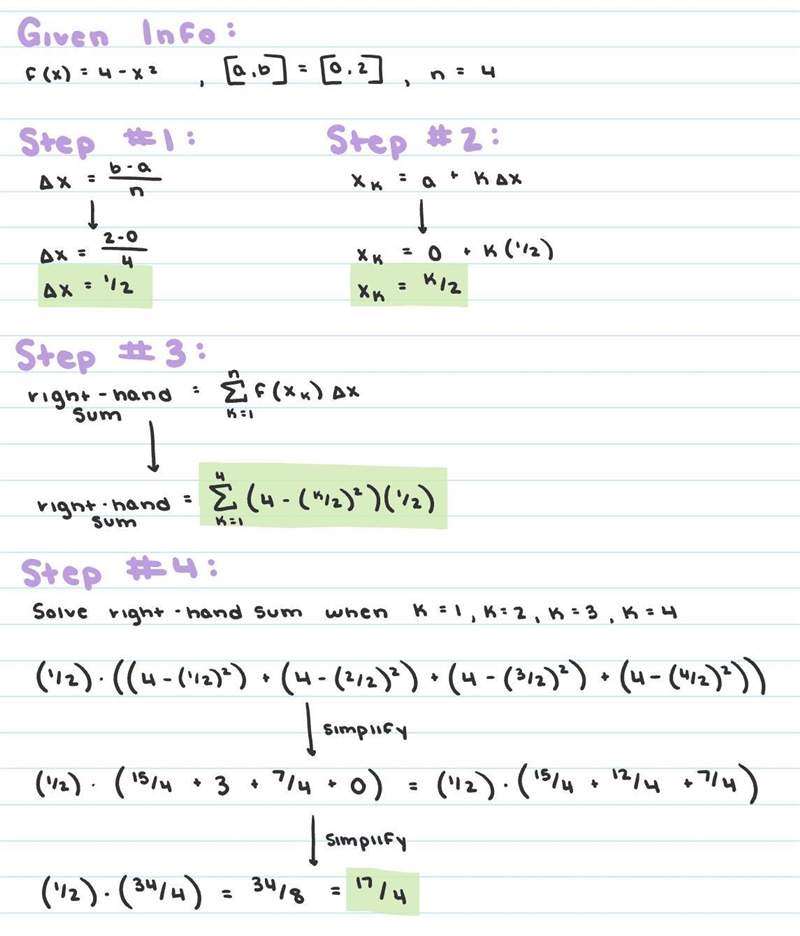 Given Info:
f(x) = 4 - x² , [a,b] = [0,2] , n = 4
Step #1:
Δx = b-a/n
Δx = 2-0/4
Δx = 1/2
Step #2:
xₖ = a + KΔx
xₖ = 0 + K(1/2)
xₖ = K/2
Step #3:
right-hand sum = Σ_{K=1}^{n} f(xₖ) Δx
right-hand sum = Σ_{K=1}^{4} (4 - (K/2)²)(1/2)
Step #4:
Solve right-hand sum when K = 1, K = 2, K = 3, K = 4
(1/2) · ((4 - (1/2)²) + (4 - (2/2)²) + (4 - (3/2)²) + (4 - (4/2)²))
simplify
(1/2) · (15/4 + 3 + 7/4 + 0) = (1/2) · (15/4 + 12/4 + 7/4)
simplify
(1/2) · (34/4) = 34/8 = 17/4